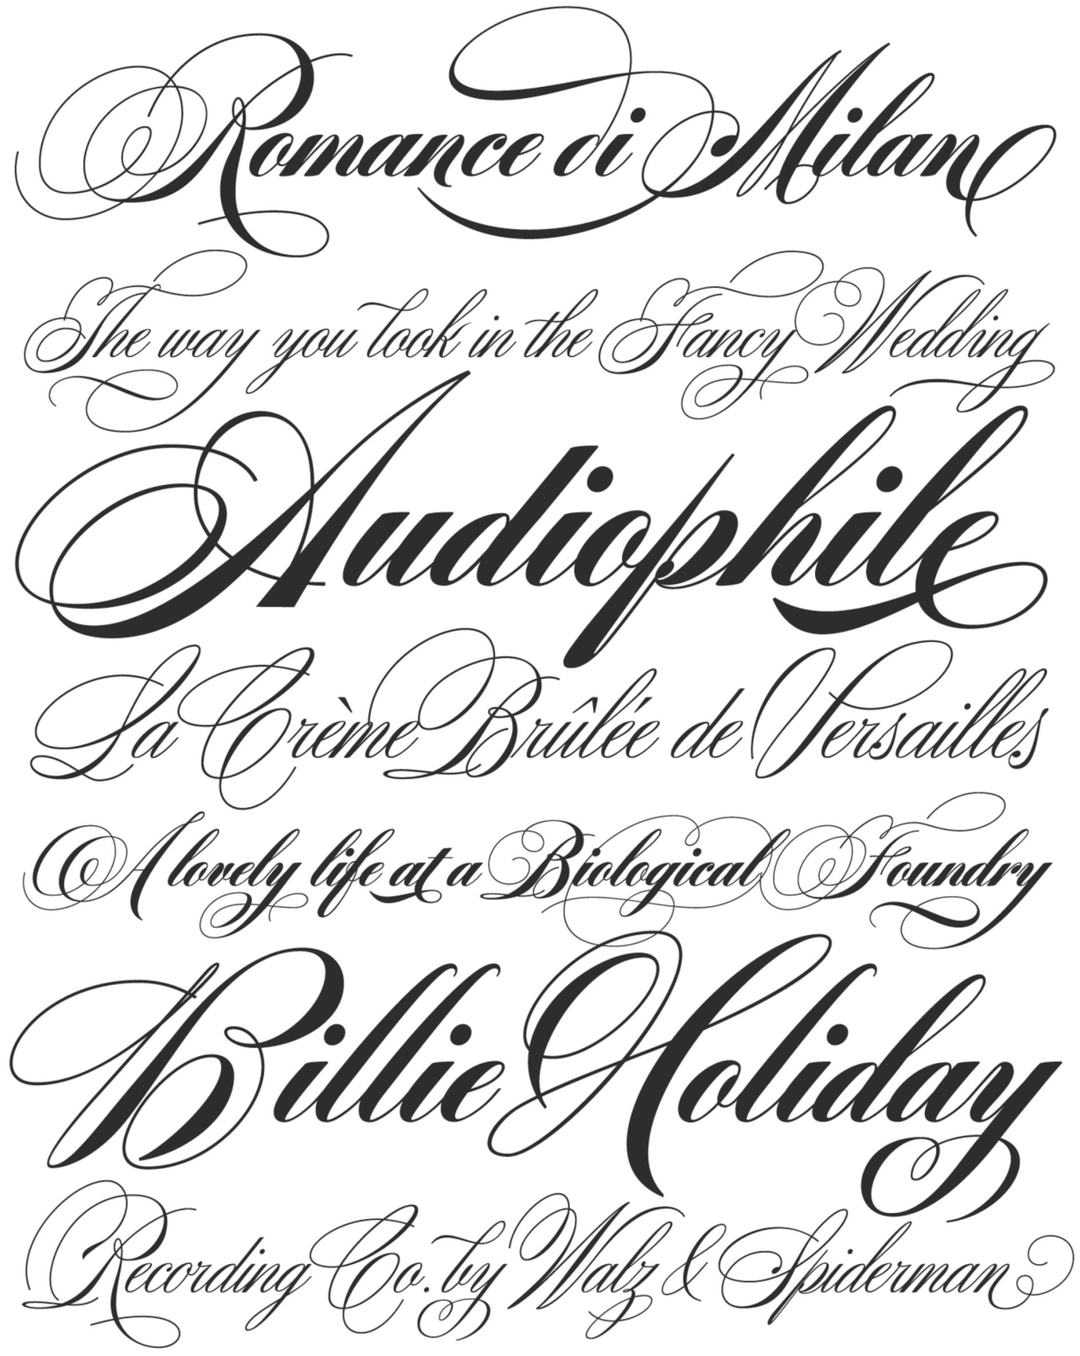 Romance di Milan
The way you look in the Fancy Wedding
Audiophile
La Crème Brûlée de Versailles
A lovely life at a Biological Foundry
Billie Holiday
Recording Co. by Walz & Spiderman